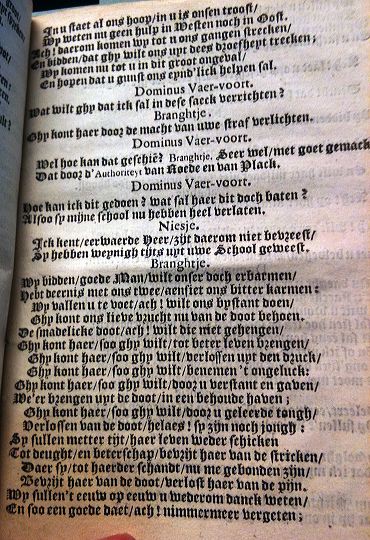 In u staet al ons hoop/in u is onsen troost/
Wy weten nu geen hulp in Westen noch in Oost.
Ach! darom komen wy tot u ons gangen strecken/
En bidden/dat ghy wilt ons uyt dees droefheyt trecken;
Wy komen nu tot u in dit groot ongeval/
En hopen dat u gunst ons eynd'lick helpen sal.
Dominus Vaer-voort.
Wat wilt ghy dat ick sal in dese saeck verrichten?
Branghtje.
Ghy kont haer door de macht van uwe straf verlichten.
Dominus Vaer-voort.
Wel hoe kan dat geschiē? Branghtje, Seer wel/met goet gemack
Dat door d'Authoriteyt van Roede en van Plack.
Dominus Vaer-voort.
Hoe kan ick dit gedoen? wat sal haer dit doch baten?
Alsoo sy mijne school nu hebben heel verlaten.
Niesje.
Ick kent/eerwaerde Heer/zijt daerom niet bevreest/
Sy hebben weynigh tijts uyt uwe School geweest.
Branghtje.
Wy bidden/goede Man/wilt onser doch erbarmen/
Hebt deernis met ons twee/aensiet ons bitter karmen:
Wy vallen u te voet/ach! wilt ons bystant doen/
Ghy kont ons lieve vrucht nu van de doot behoen.
De smadelicke doot/ach! wilt die niet gehengen/
Ghy kont haer/soo ghy wilt/tot beter leven brengen/
Ghy kont haer/soo ghy wilt/verlossen uyt den druck/
Ghy kont haer/soo ghy wilt/benemen 't ongeluck:
Ghy kont haer/soo ghy wilt/door u verstant en gaven/
We'er brengen uyt de doot/in een behoude haven;
Ghy kont haer/soo ghy wilt/door u geleerde tongh/
Verlossen van de doot/helaes! sy zijn noch jongh:
Sy sullen metter tijt/haer leven weder schicken
Tot deught/en beterschap/bevrijt haer van de stricken/
Daer sy/tot haerder schandt/nu me gebonden zijn/
Bevrijt haer van de doot/verlost haer van de pijn.
Wy sullen't eeuw op eeuw u wederom danck weten/
En soo een goede daet/ach! nimmermeer vergeten;